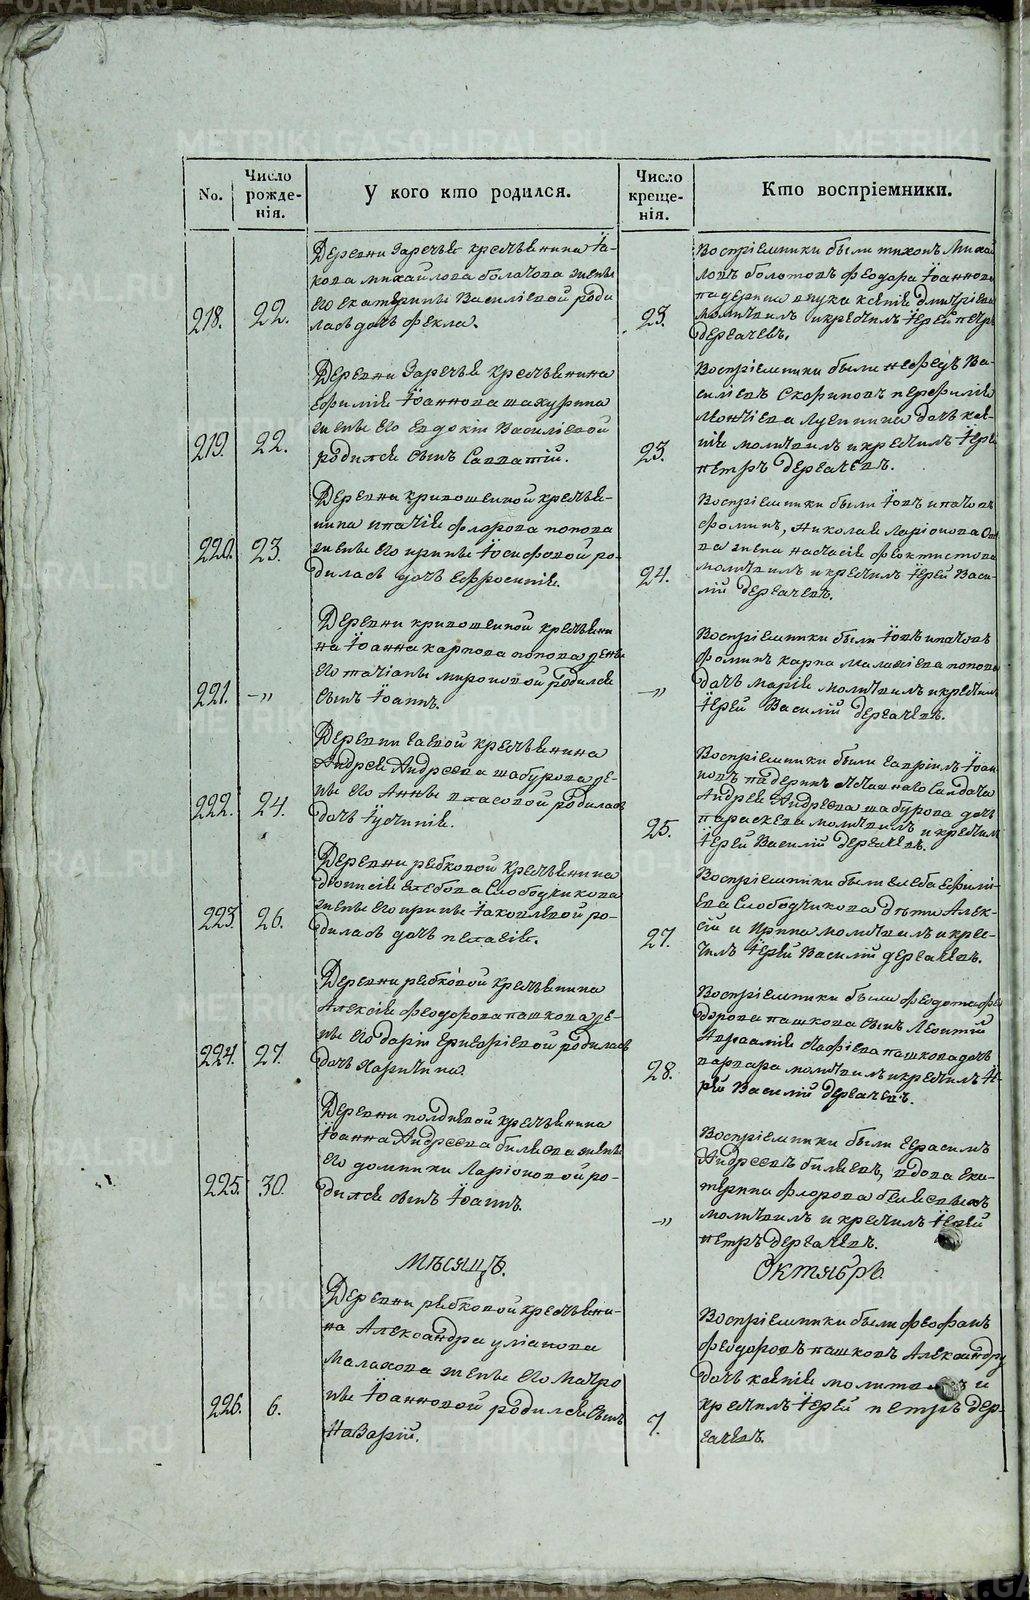 METRIKI.GASO-URAL.RU
No.
Число рожде-
нія.
У кого кто родился.
Число креще-
нія.
Кто воспріемники.
218.
22.
Деревни Заречья крестьянина Іа-
кова михайлова болотова жены
его екатерины Василіевой роди
лась дочь фекла.
23.
Воспріемники были тихонъ Михай
ловъ болотовъ феодора Іоаннова
падерина внука ксенія дмитріева
молитвилъ и крестилъ Іерей петръ
дергачевъ.
219.
22.
Деревни Заречья крестьянина
ефимія Іоаннова
жены его евдокіи Василіевой
родился сынъ Савватій.
23.
Воспріемники были Ва-
силіевъ
дочь ксе-
нія молитвилъ и крестилъ Іерей
петръ дергачевъ.
220.
23.
Деревни кривошеиной крестья-
нина ипатія флорова попова
жены его ирины Іосифовой ро-
дилась дочь ефросинія.
24.
Воспріемники были Іовъ ипатовъ
фоминъ, Николая Ларіонова
ва жена настасія феоктистова
молитвилъ и крестилъ Іерей Васи-
лій дергачевъ.
221.
-„
Деревни кривошеиной крестьяни
на Іоанна карпова попова жены
его татіаны мироновой родился
сынъ Іоаннъ.
-„
Воспріемники были Іовъ ипатовъ
фоминъ карпа Малахіева попова
дочь марія молитвилъ и крестилъ
Іерей Василій дергачевъ.
222.
24.
Деревни гаевой крестьянина
Андрея Андреева шабурова же-
ны его Анны власовой родилась
дочь Іустинія.
25.
Воспріемники были гавріилъ Іоан
новъ падеринъ Солдата
Андрея Андреева шабурова дочь
параскева молитвилъ и крестилъ
Іерей Василій дергачевъ.
223.
26.
Деревни рябковой крестьянина
діонисія глебова Слободчикова
жены его ирины Іаковлевой ро-
дилась дочь пелагія.
27.
Воспріемники были глеба ефимі-
ева Слободчикова дѣти Алек-
сій и Ирина молитвилъ и крес-
тилъ Іерей Василій дергачевъ.
224.
27.
Деревни рябковой крестьянина
Алексія феодорова пашкова же-
ны его даріи григоріевой родилась
дочь Харитина.
28.
Воспріемники были федота фео
дорова пашкова сынъ Леонтій
Авраамія пашкова дочь
варвара молитвилъ и крестилъ Іе-
рей Василій дергачевъ.
225.
30.
Деревни полдневой крестьянина
Іоанна Андреева биляева жены
его домники Ларіоновой ро-
дился сынъ Іоаннъ.
-„
Воспріемники были герасимъ
Андреевъ биляевъ, вдова ека-
терина флорова
молитвилъ и крестилъ Іерей
петръ дергачевъ.
Мѣсяцъ.
Октябрь
226.
6.
Деревни рябковой крестьяни-
на Александра уліанова
Малахова жены его Матро
ны Іоанновой родился сынъ
Назарій.
7.
Воспріемники были феофанъ
феодоровъ пашковъ Александру
дочь ксенія молитвилъ и
крестилъ Іерей петръ дер-
гачевъ.